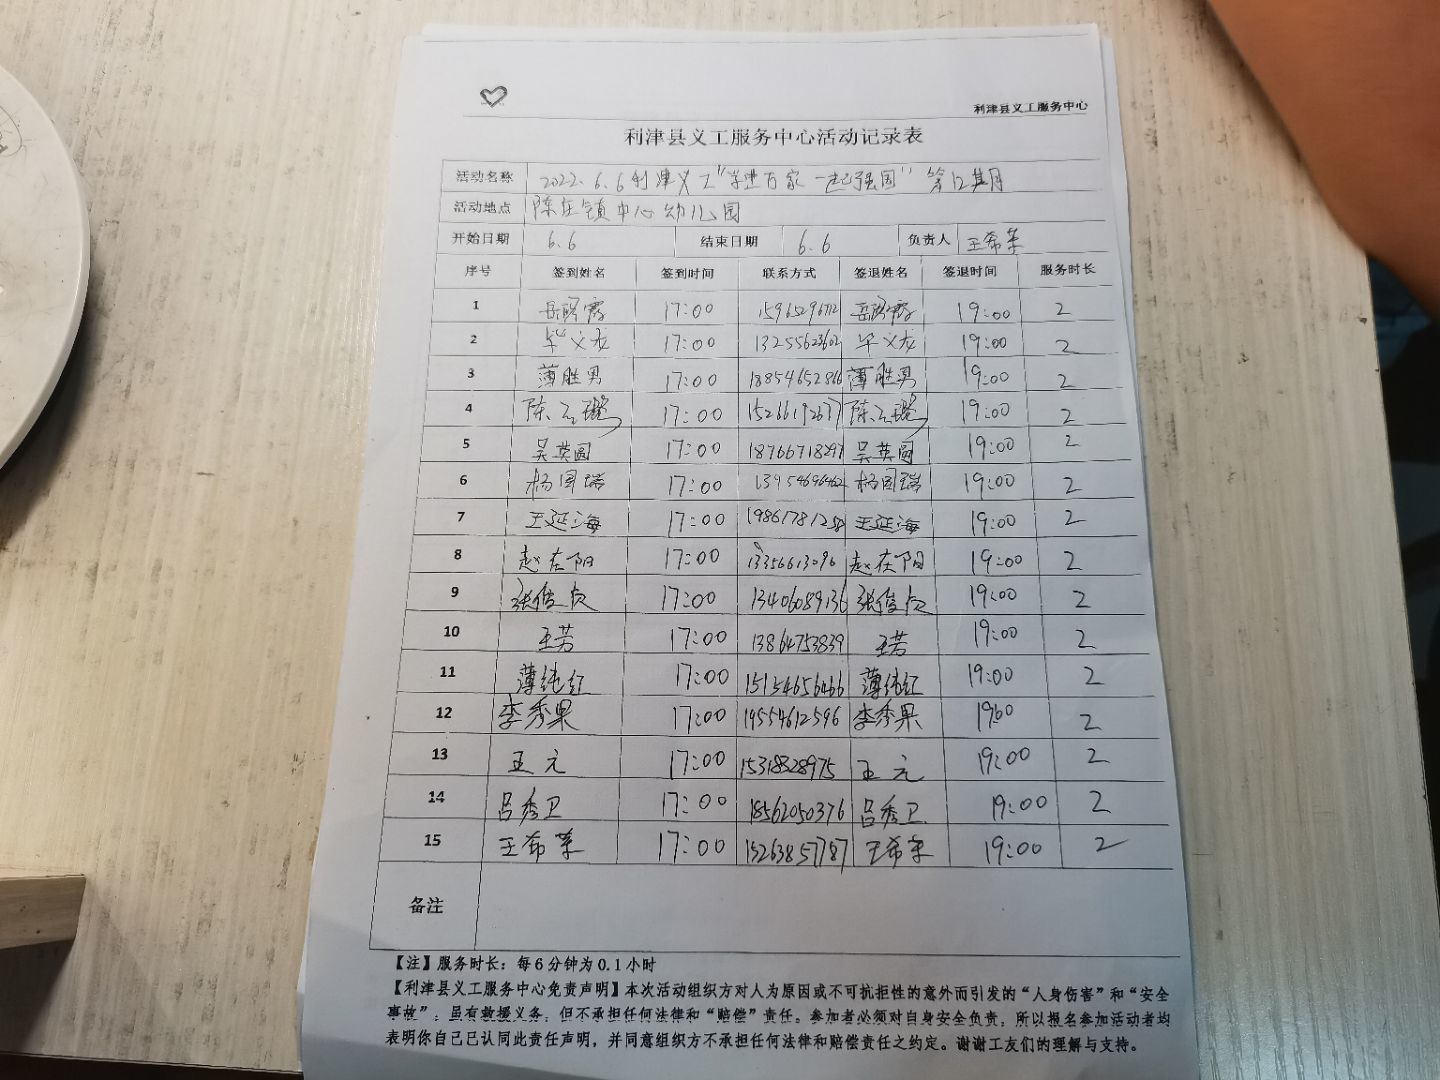 利津县义工服务中心
利津县义工服务中心活动记录表
活动名称 2022.6.6利津义工"学进万家 一起强国" 第12期
活动地点 陈庄镇中心幼儿园
开始日期 6.6 结束日期 6.6 负责人 王希荣
序号 签到姓名 签到时间 联系方式 签退姓名 签退时间 服务时长
1 岳路霞 17:00 15965296712 岳路霞 19:00 2
2 毕义龙 17:00 13255623602 毕义龙 19:00 2
3 薄胜男 17:00 18854652866 薄胜男 19:00 2
4 陈云璐 17:00 15266192637 陈云璐 19:00 2
5 吴英圆 17:00 18766718297 吴英圆 19:00 2
6 杨国瑞 17:00 13954696462 杨国瑞 19:00 2
7 王延海 17:00 王延海 19:00 2
8 赵在阳 17:00 13356613096 赵在阳 19:00 2
9 张俊贞 17:00 13406089136 张俊贞 19:00 2
10 王芳 17:00 13864753839 王芳 19:00 2
11 薄纯红 17:00 15154656466 薄纯红 19:00 2
12 李秀果 17:00 19554612596 李秀果 19:00 2
13 王元 17:00 15318328975 王元 19:00 2
14 吕秀卫 17:00 18562050376 吕秀卫 19:00 2
15 王希荣 17:00 15263857787 王希荣 19:00 2
备注
【注】服务时长：每6分钟为0.1小时
【利津县义工服务中心免责声明】本次活动组织方对人为原因或不可抗拒性的意外而引发的“人身伤害”和“安全
事故”，虽有救援义务，但不承担任何法律和“赔偿”责任。参加者必须对自身安全负责，所以报名参加活动者均
表明你自己已认同此责任声明，并同意组织方不承担任何法律和赔偿责任之约定。谢谢工友们的理解与支持。